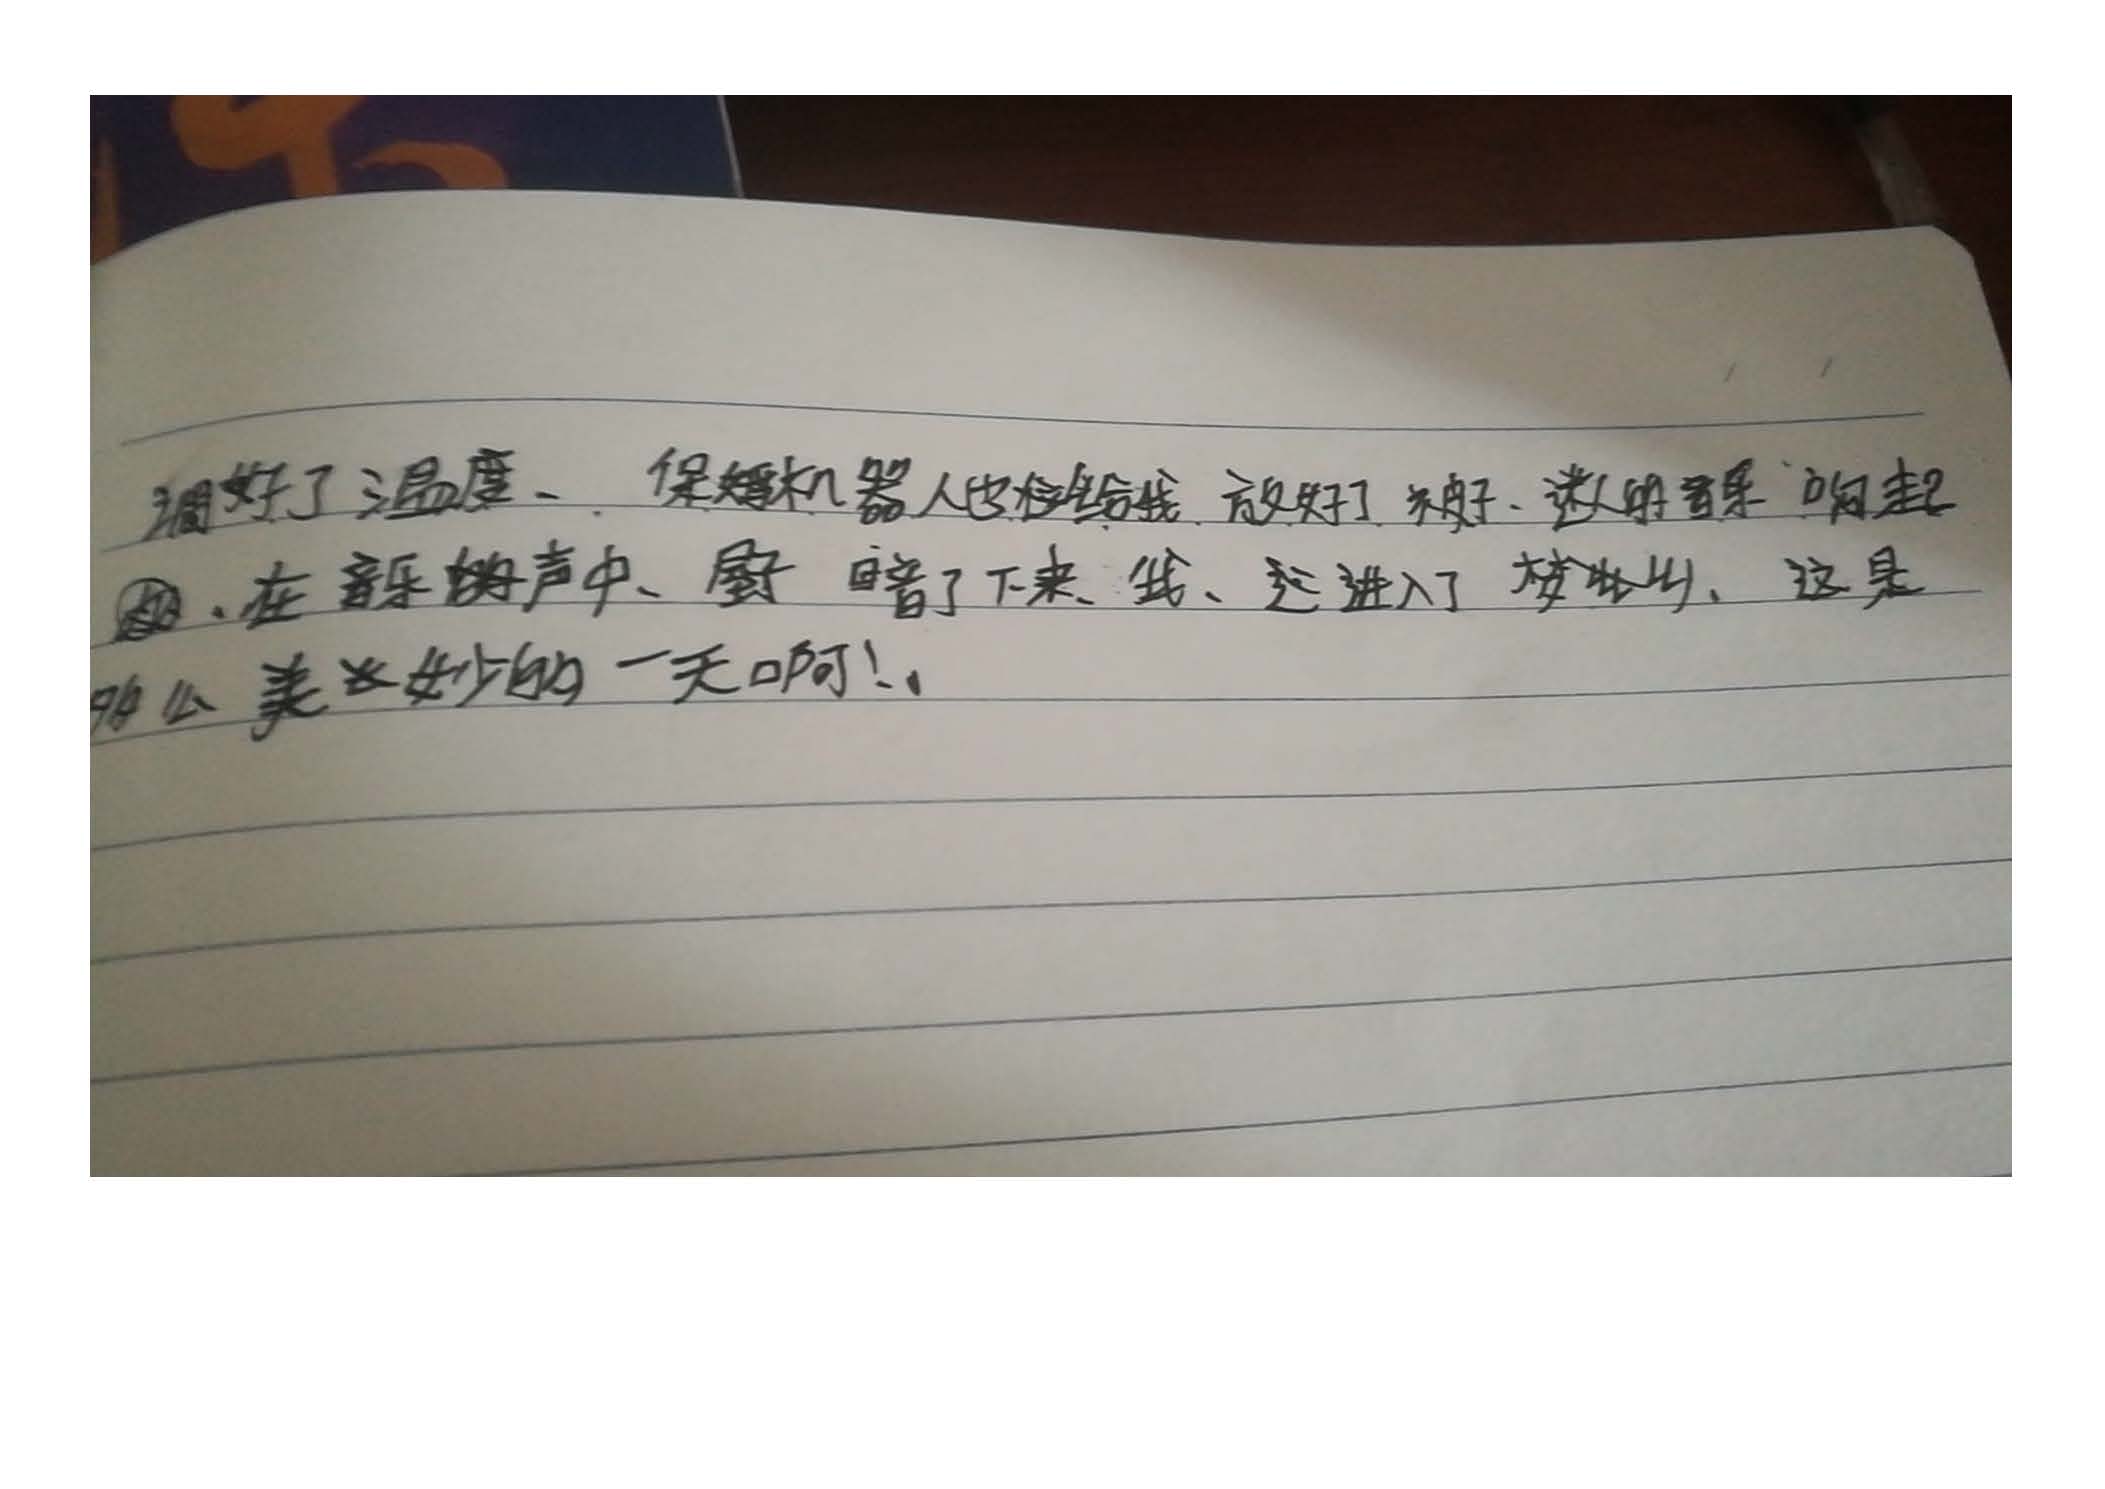 调好了温度、保姆机器人也给我放好了、迷人的音乐响起
、在音乐声中、暗了下来、我、进入了梦乡、这是
多么美妙的一天啊！、